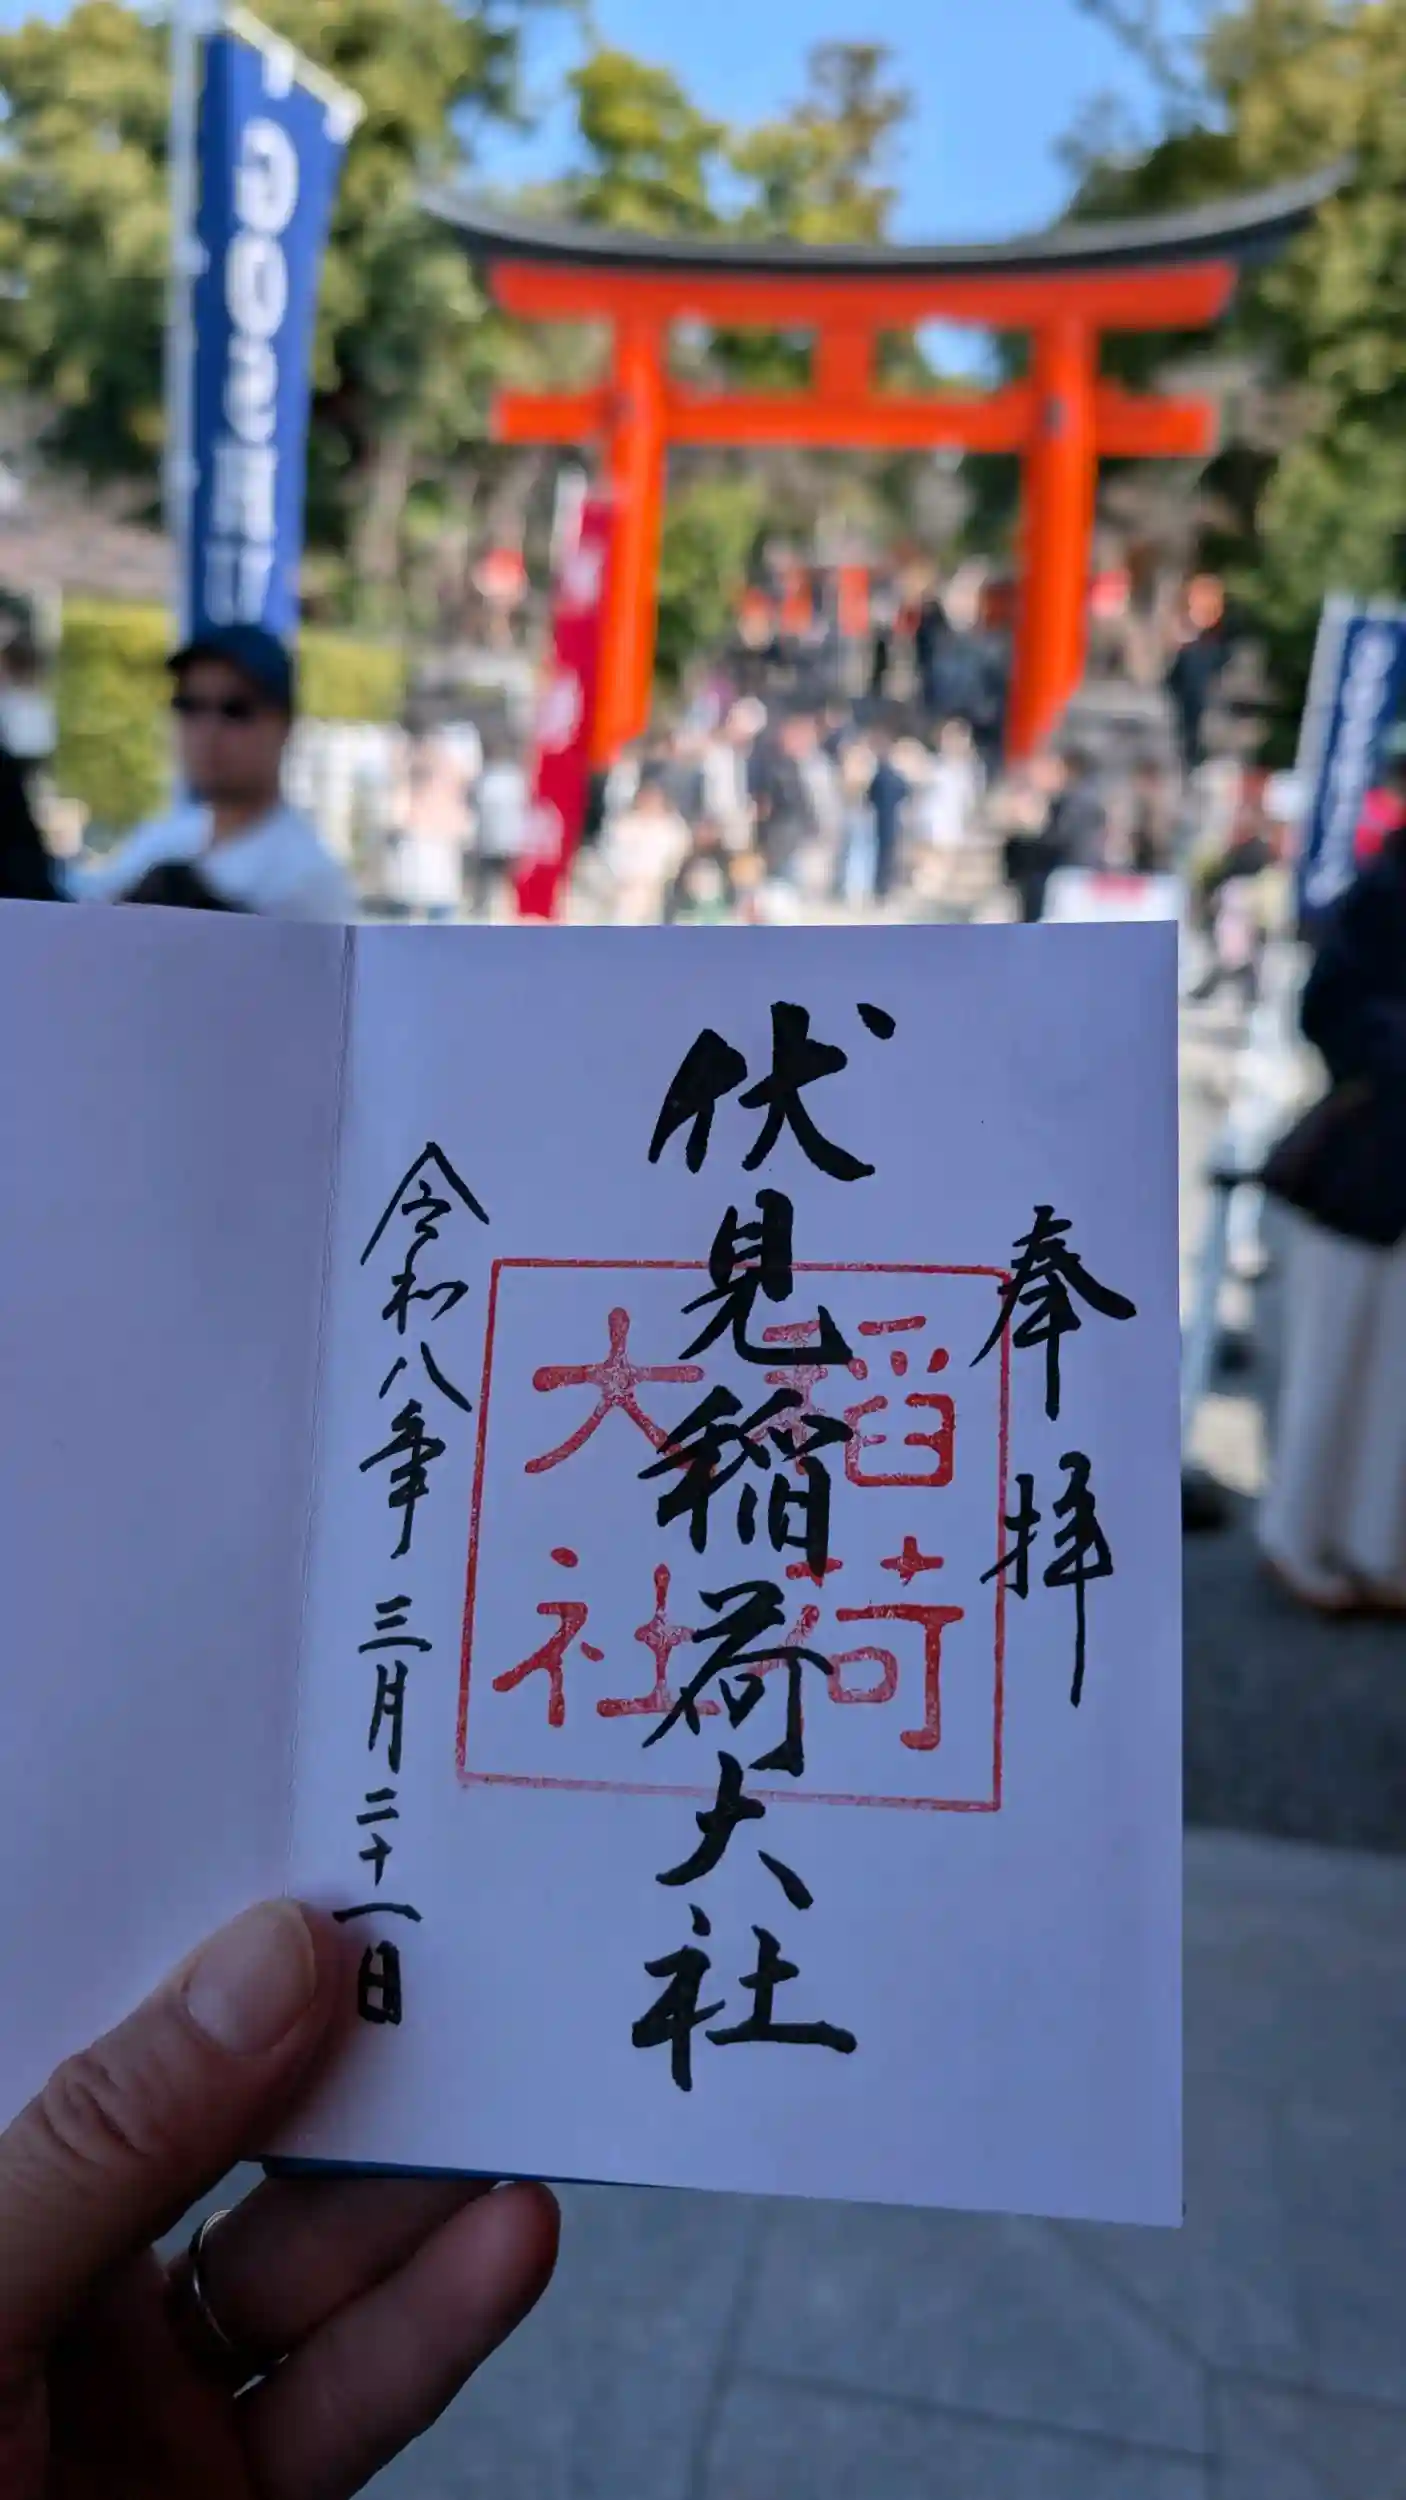 GOSHUIN
奉拝
伏見稲荷大社
稲荷
大社
令和八年三月二十一日